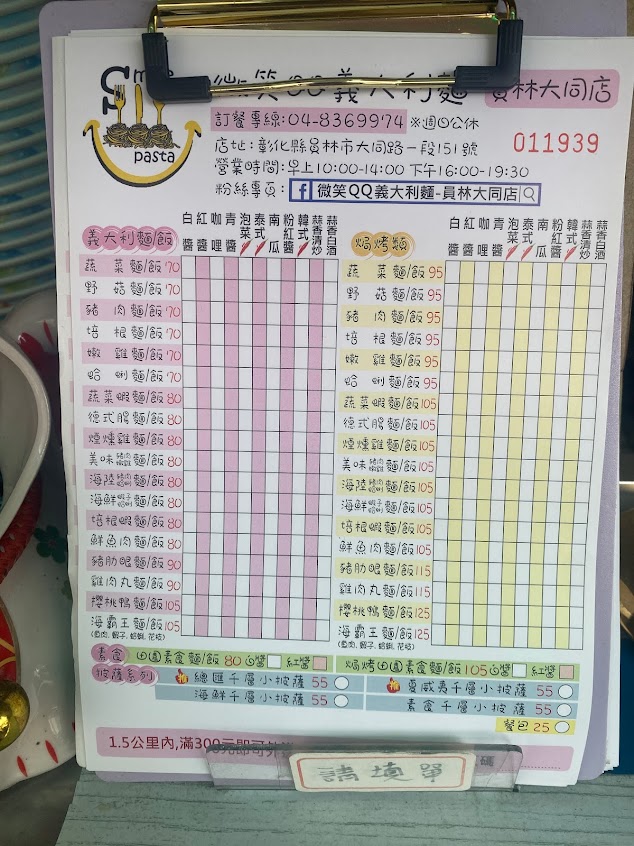 微笑QQ義大利麵 員林大同店
pasta
訂餐專線:04-8369974 ※週四公休
011939
店址:彰化縣員林市大同路一段151號
營業時間:早上10:00-14:00 下午16:00-19:30
粉絲專頁: 微笑QQ義大利麵-員林大同店
義大利麵飯 白醬 紅醬 咖哩 青醬 泡菜 泰式 南瓜 粉紅醬 韓式 蒜香清炒 蒜香白酒
蔬菜麵/飯 70
野菇麵/飯 70
豬肉麵/飯 70
培根麵/飯 70
嫩雞麵/飯 70
哈唎麵/飯 70
蔬菜蝦麵/飯 80
德式腸麵/飯 80
煙燻雞麵/飯 80
美味豬肉嫩雞麵/飯 80
海陸豬肉蛤唎麵/飯 80
海鮮蝦子蛤唎麵/飯 80
培根蝦麵/飯 80
鮮魚肉麵/飯 80
豬肋眼麵/飯 90
雞肉丸麵/飯 90
櫻桃鴨麵/飯 105
海霸王麵/飯 105
(魚肉, 蝦子, 蛤唎, 花枝)
焗烤類 白醬 紅醬 咖哩 青醬 泡菜 泰式 南瓜 粉紅醬 韓式 蒜香清炒 蒜香白酒
蔬菜麵/飯 95
野菇麵/飯 95
豬肉麵/飯 95
培根麵/飯 95
嫩雞麵/飯 95
哈唎麵/飯 95
蔬菜蝦麵/飯 105
德式腸麵/飯 105
煙燻雞麵/飯 105
美味豬肉嫩雞麵/飯 105
海陸豬肉蛤唎麵/飯 105
海鮮蝦子蛤唎麵/飯 105
培根蝦麵/飯 105
鮮魚肉麵/飯 105
豬肋眼麵/飯 115
雞肉丸麵/飯 115
櫻桃鴨麵/飯 125
海霸王麵/飯 125
(魚肉, 蝦子, 蛤唎, 花枝)
素食 田園素食麵/飯 80 白醬 紅醬
焗烤田園素食麵/飯 105 白醬 紅醬
披薩系列 總匯千層小披薩 55
夏威夷千層小披薩 55
海鮮千層小披薩 55
素食千層小披薩 55
餐包 25
1.5公里內,滿300元即可外
請填單